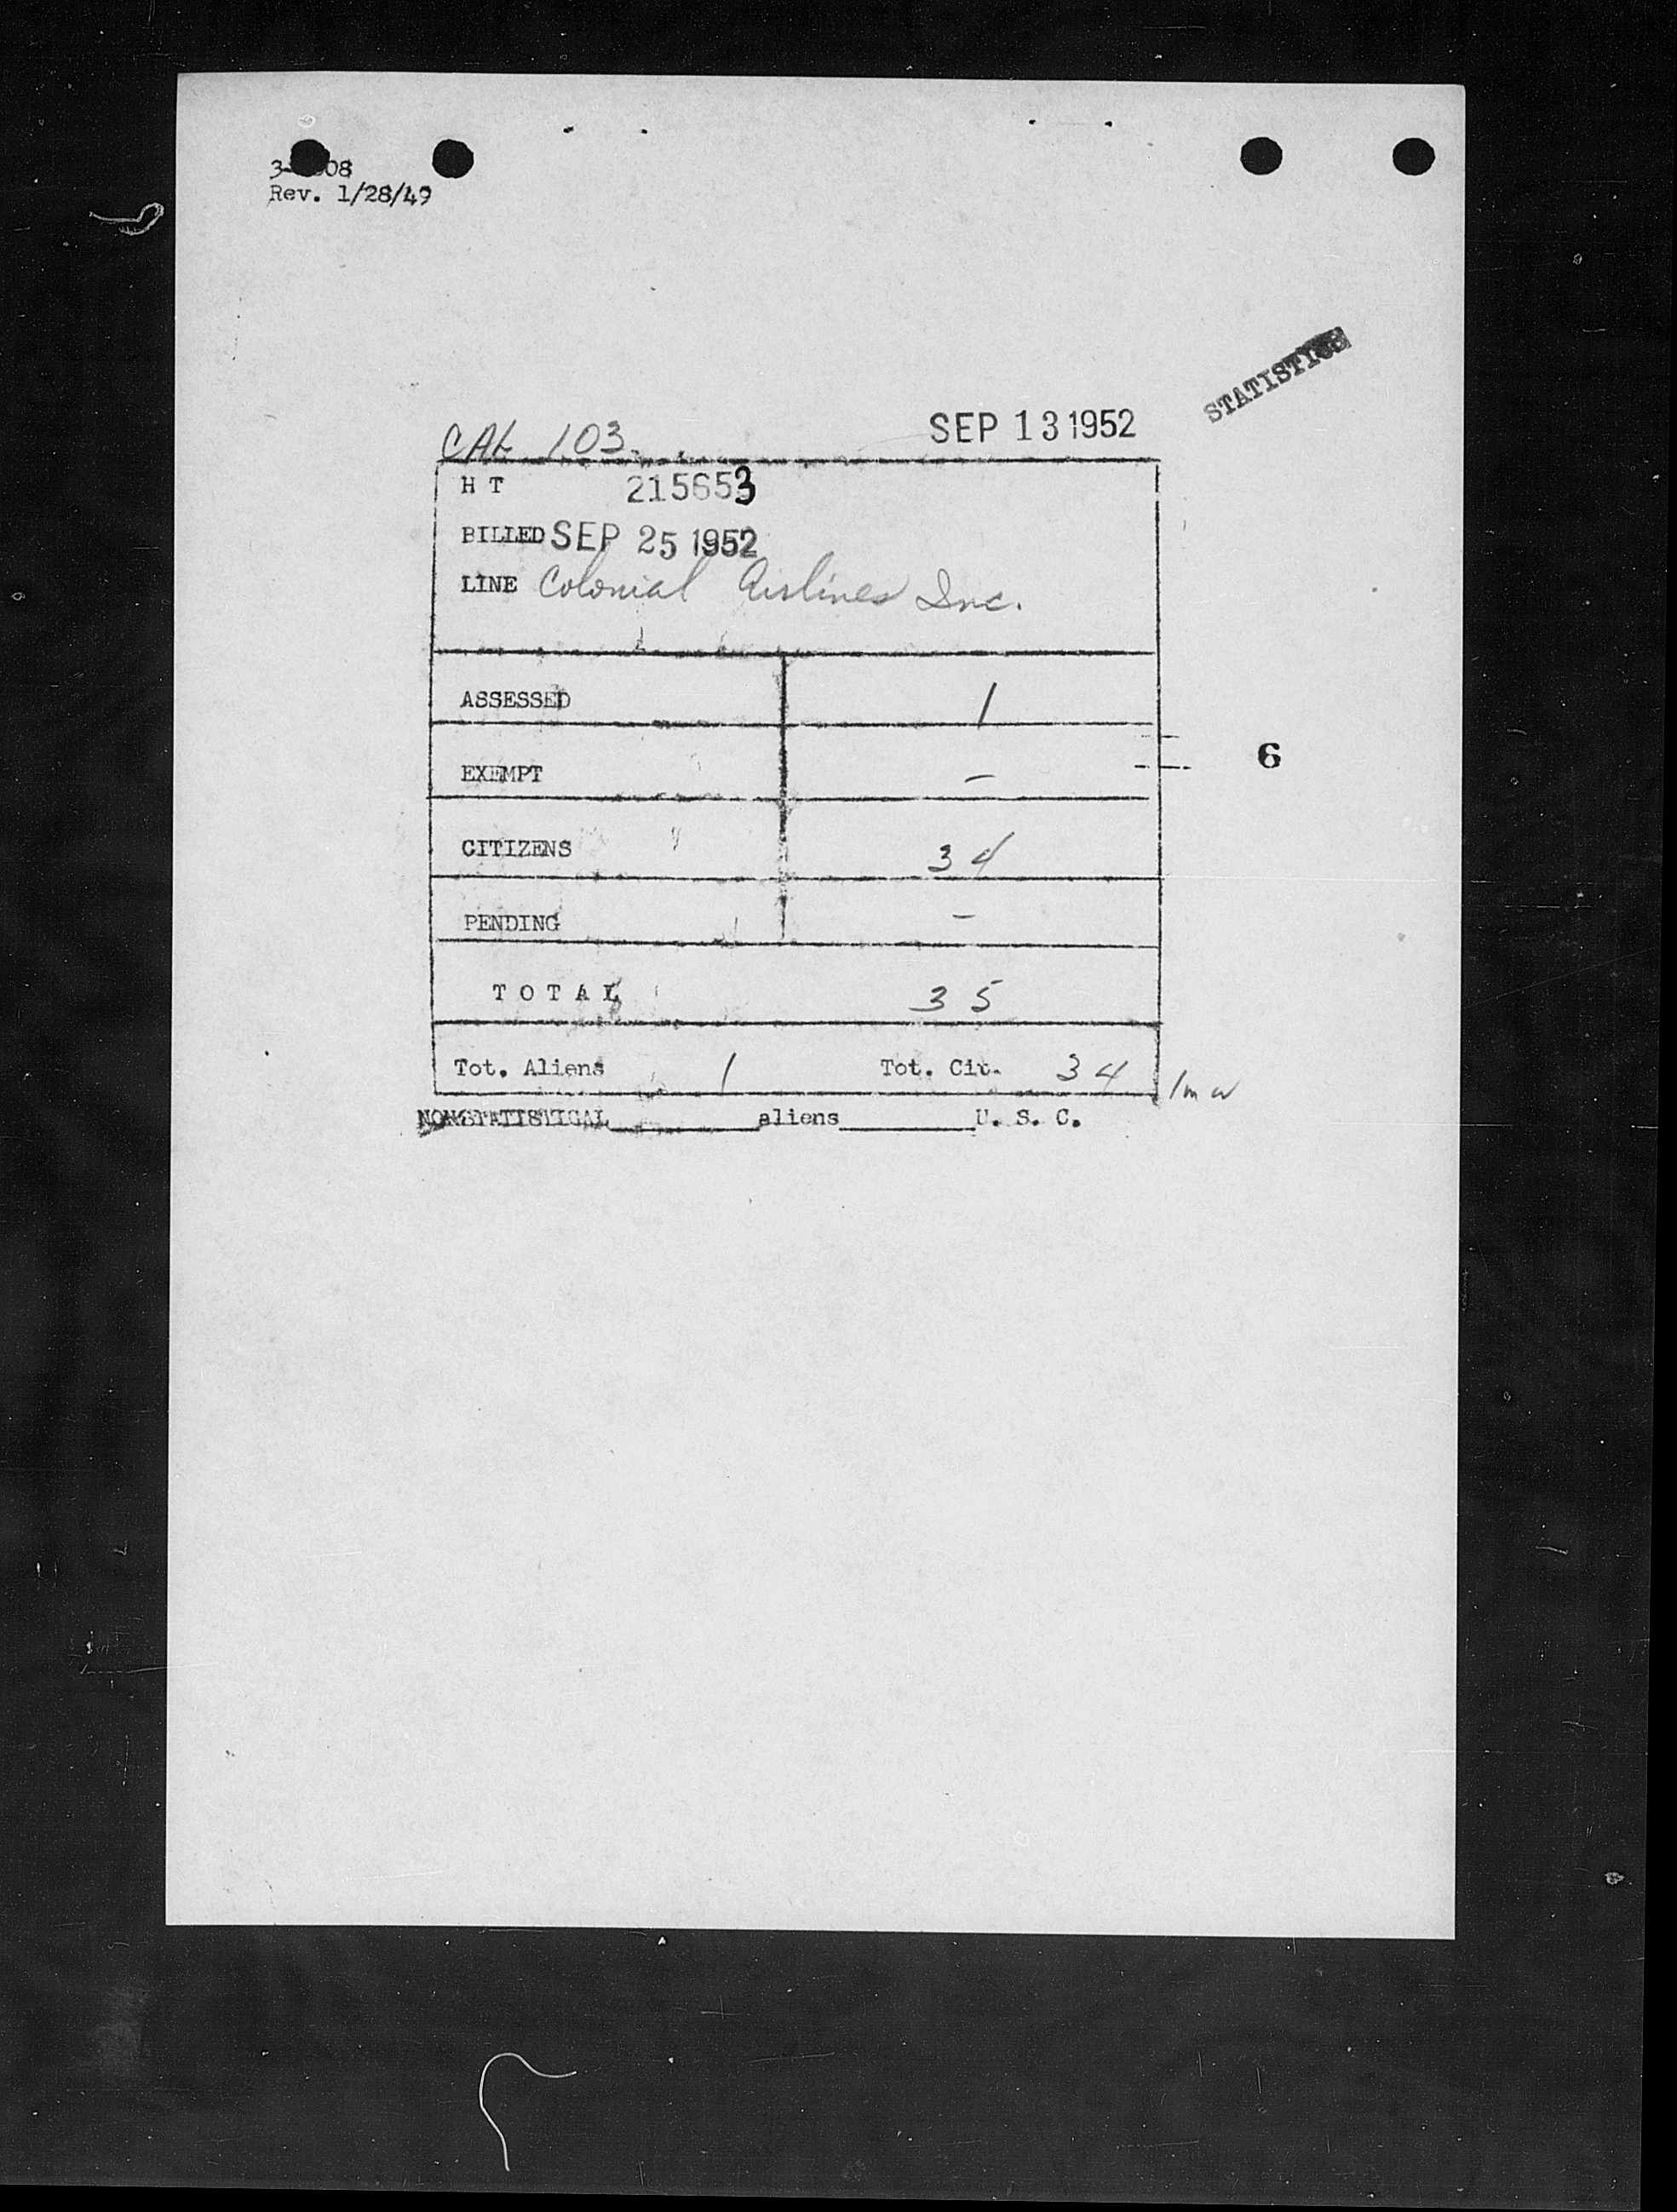 Rev. 1/28/49
STATISTICS
CAL 103 SEP 13 1952
H T 215653
BILLED SEP 25 1952
LINE Colonial Airlines Inc.
ASSESSED 1
EXEMPT –
6
CITIZENS 34
PENDING –
TOTAL 35
Tot. Aliens 1 Tot. Cit. 34
NONSTATISTICAL________aliens________U. S. C.